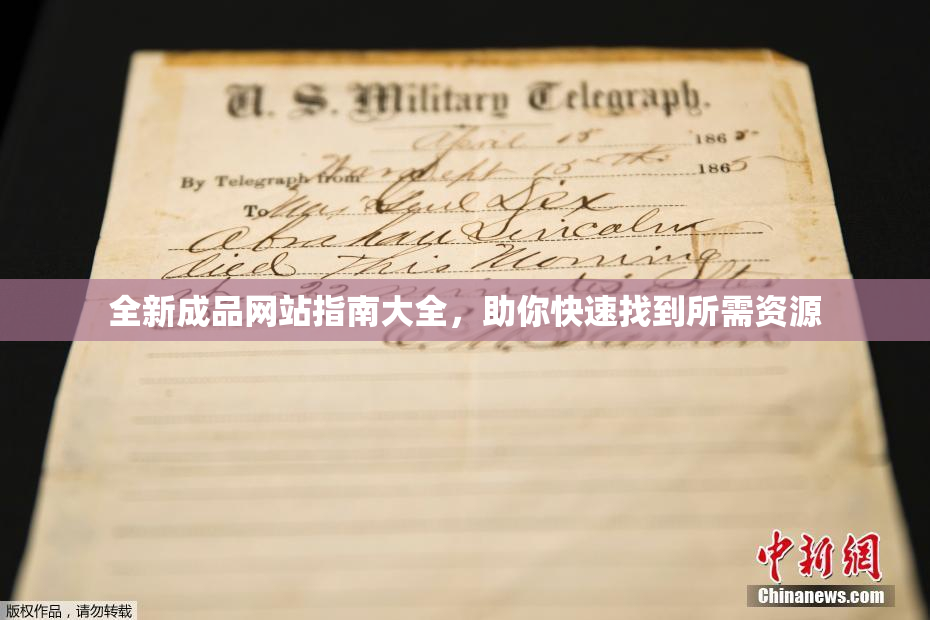 U. S. Military Telegraph.
April 15 1865
By Telegraph from War Dept 15th 1865
To Maj Genl Dix
Abraham Lincoln
died This Morning
22 minutes after
全新成品网站指南大全，助你快速找到所需资源
E. M. Stanton
中新网
Chinanews.com
版权作品，请勿转载